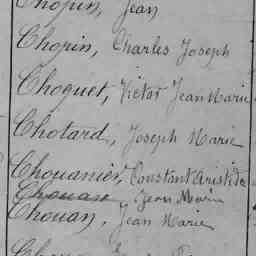 Chopin, Jean
Chopin, Charles Joseph
Choquet, Victor Jean Marie
Chotard, Joseph Marie
Chouanier, Constant Aristide
Chouan Jean Marie
Chouan, Jean Marie